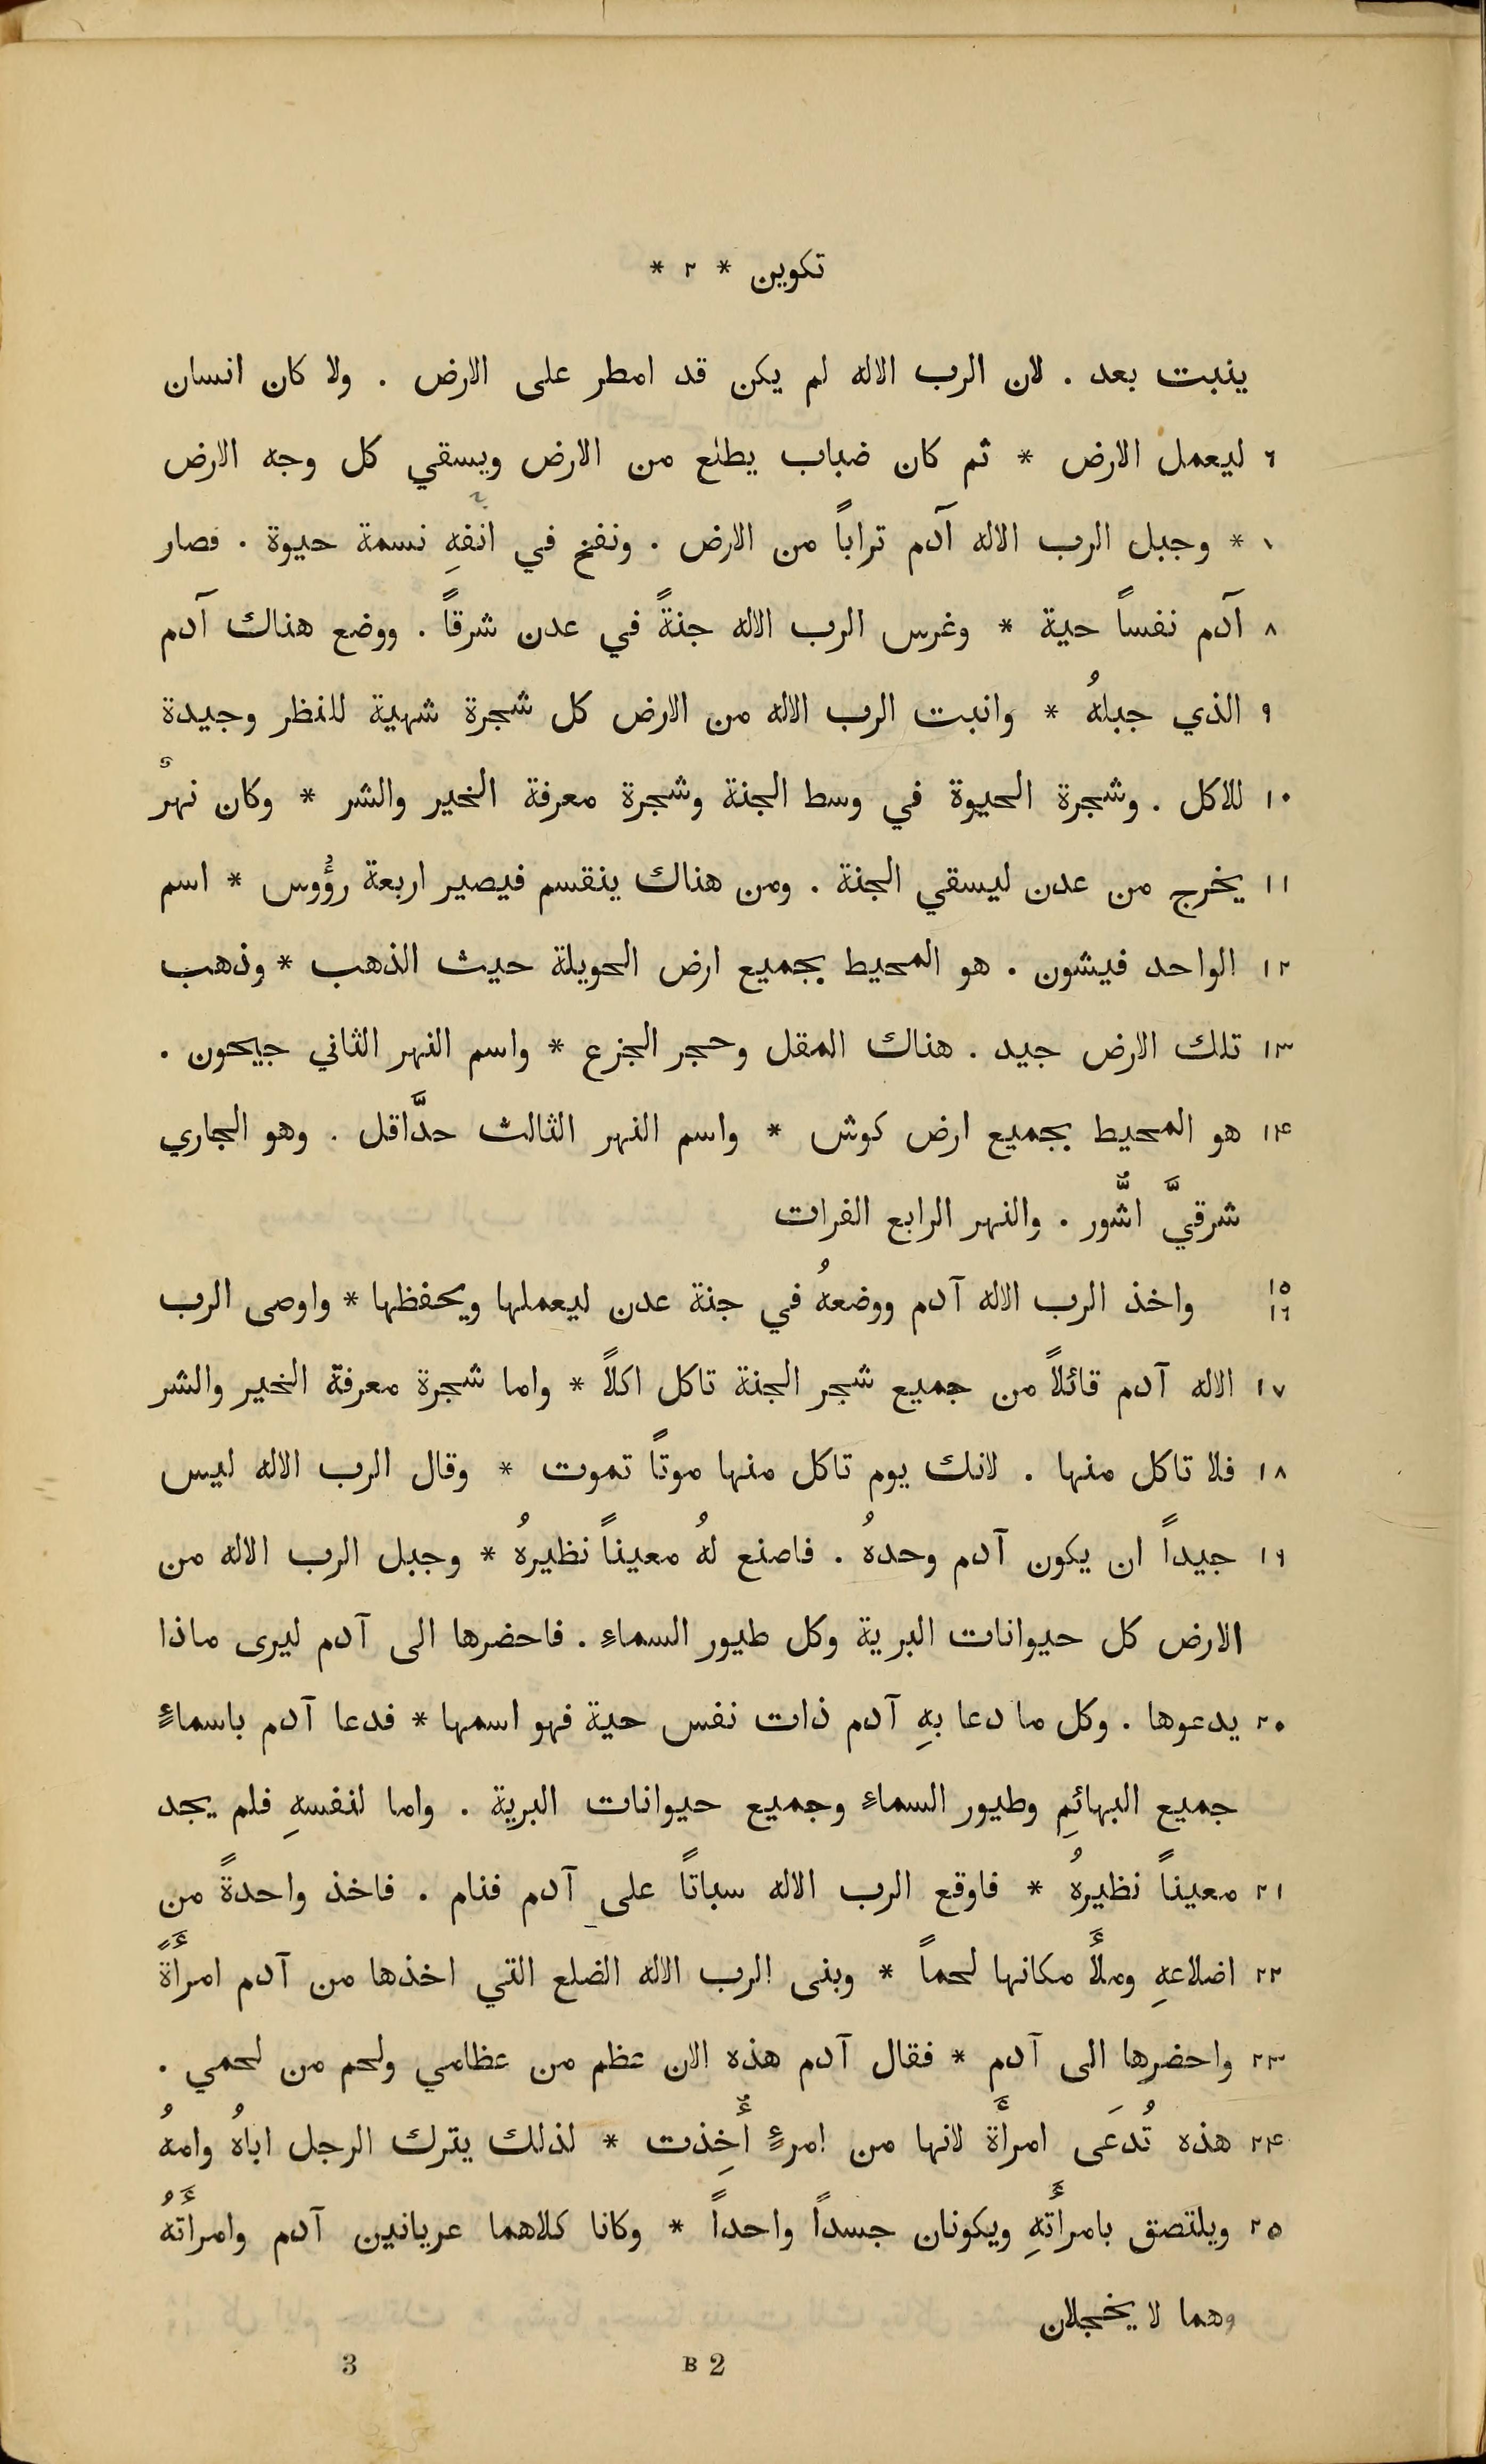 تكوين * ٢ *
ينبت بعد . لان الرب الاله لم يكن قد امطر على الارض . ولا كان انسان
٦ ليعمل الارض * ثم كان ضباب يطلع من الارض ويسقي كل وجه الارض
٧ * وجبل الرب الاله آدم تراباً من الارض . ونفخ في انفهِ نسمة حيوة . فصار
٨ آدم نفساً حية * وغرس الرب الاله جنةً في عدن شرقاً . ووضع هناك آدم
٩ الذي جبلهُ * وانبت الرب الاله من الارض كل شجرة شهية للنظر وجيدة
١٠ للاكل . وشجرة الحيوة في وسط الجنة وشجرة معرفة الخير والشر * وكان نهرٌ
١١ يخرج من عدن ليسقي الجنة . ومن هناك ينقسم فيصير اربعة رؤُوس * اسم
١٢ الواحد فيشون . هو المحيط بجميع ارض الحويلة حيث الذهب * وذهب
١٣ تلك الارض جيد . هناك المقل وحجر الجزع * واسم النهر الثاني جيحون .
١٤ هو المحيط بجميع ارض كوش * واسم النهر الثالث حدَّاقل . وهو الجاري
شرقيَّ اشُّور . والنهر الرابع الفرات
١٥ ١٦ واخذ الرب الاله آدم ووضعهُ في جنة عدن ليعملها ويحفظها * واوصى الرب
١٧ الاله آدم قائلاً من جميع شجر الجنة تاكل اكلاً * واما شجرة معرفة الخير والشر
١٨ فلا تاكل منها . لانك يوم تاكل منها موتاً تموت * وقال الرب الاله ليس
١٩ جيداً ان يكون آدم وحدهُ . فاصنع لهُ معيناً نظيرهُ * وجبل الرب الاله من
الارض كل حيوانات البرية وكل طيور السماءِ . فاحضرها الى آدم ليرى ماذا
٢٠ يدعوها . وكل ما دعا بهِ آدم ذات نفس حية فهو اسمها * فدعا آدم باسماءٍ
جميع البهائمِ وطيور السماءِ وجميع حيوانات البرية . واما لنفسهِ فلم يجد
٢١ معيناً نظيرهُ * فاوقع الرب الاله سباتاً على آدم فنام . فاخذ واحدةً من
٢٢ اضلاعهِ وملأَ مكانها لحماً * وبنى الرب الاله الضلع التي اخذها من آدم امرأَةً
٢٣ واحضرها الى آدم * فقال آدم هذه الان عظم من عظامي ولحم من لحمي .
٢٤ هذه تُدعَى امرأَة لانها من امرءٍ أُخِذت * لذلك يترك الرجل اباهُ وامهُ
٢٥ ويلتصق بامرأَتهِ ويكونان جسداً واحداً * وكانا كلاهما عريانين آدم وامرأَتهُ
وهما لا يخجلان
B 2 3